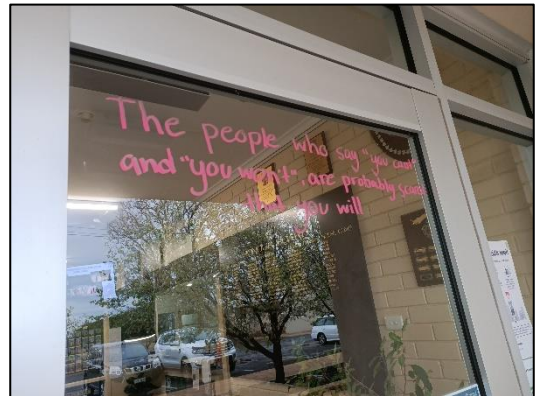 The people who say "you can't"
and "you won't", are probably scared
that you will